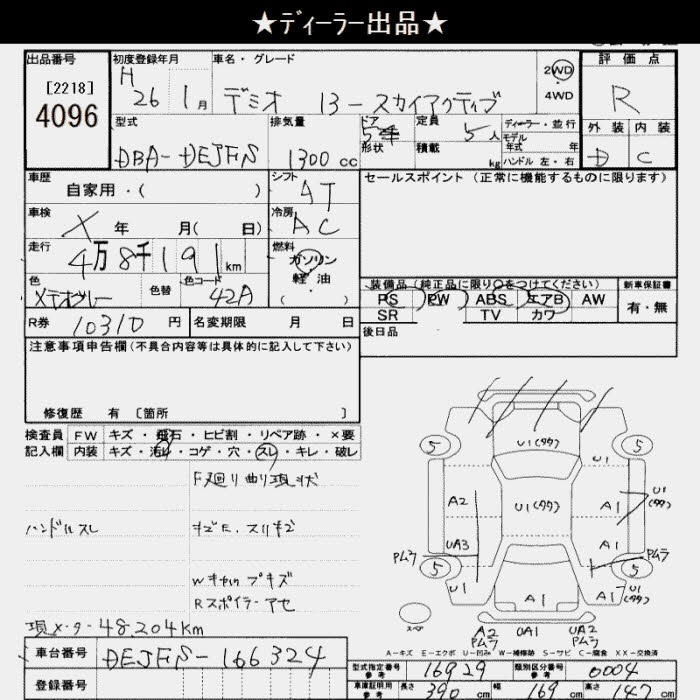 ★ディーラー出品★
出品番号 初度登録年月 車名・グレード 評価点
[2218] H 26 1月 デミオ 13-スカイアクティブ 2WD R
4096 4WD
型式 排気量 ドア 定員 ディーラー・並行 外装 内装
5 5人 モデル年式 年
DBA-DEJFS 1300cc 形状 積載 kg ハンドル 左・右 D C
車歴 シフト セールスポイント(正常に機能するものに限ります)
自家用・( ) AT
車検 冷房
X 年 月( 日) AC
走行 燃料
4万8千191km ガソリン
色 色替 色コード 軽・油 装備品(純正品に限り○をつけてください) 新車保証書
メテオグレー 42A ( ) PS PW ABS エアB AW 有・無
SR TV カワ
R券 10310円 名変期限 月 日 後日品
注意事項申告欄(不具合内容等は具体的に記入して下さい)
修復歴 有 〔箇所 〕
検査員 FW キズ・飛石・ヒビ割・リペア跡・×要
記入欄 内装 キズ・汚れ・コゲ・穴・スレ・キレ・破レ
F廻り曲り現状
ハンドルスレ
Rスポイラーアセ
現メーター48204km
5 U1(ワワ) 5
U1
A2 U1(ワワ) A1 U1(ワワ)
UA3 A1
PMラ 5 5 PMラ
U1 A1 A1
スペア
A2 UA1 UA2
PMラ PMラ
A-キズ E-エクボ U-凹み W-補修跡 S-サビ C-腐食 XX-交換済
車台番号 DEJFS-166324 型式指定番号 参考 16929 類別区分番号 参考 0004
登録番号 車庫証明用 参考 長さ 390cm 幅 169cm 高さ 147cm